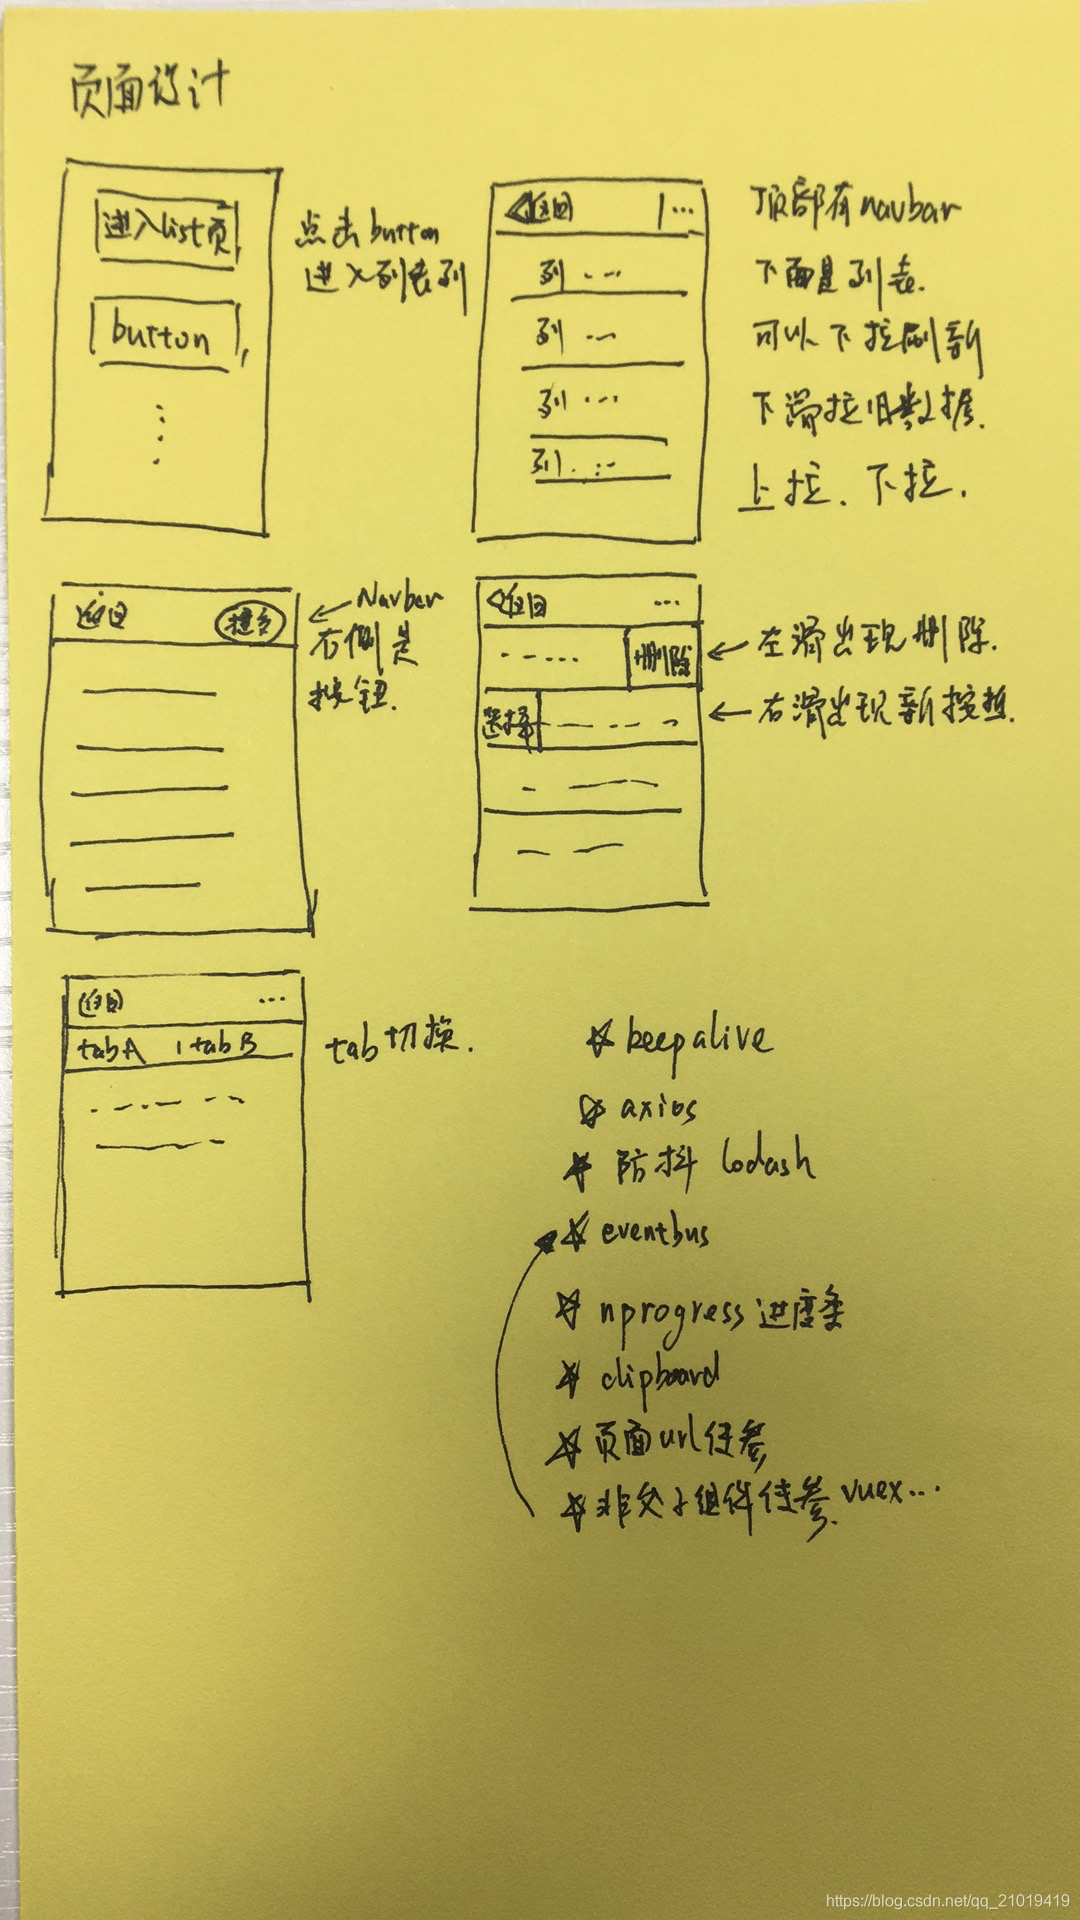 页面设计
进入list页
button
点击button
进入列表列
返回 | ...
列 ...
列 ...
列 ...
列 ...
顶部有navbar
下面是列表.
可以下拉刷新
下滑拉旧数据.
上拉、下拉.
返回
Navbar
右侧是
按钮.
返回 ...
删除
选择
左滑出现删除.
右滑出现新按
返回 ...
tabA | tabB
tab切换.
keepalive
axios
防抖 lodash
eventbus
nprogress 进度条
clipboard
页面url传参
非父子组件传参. vuex...
https://blog.csdn.net/qq_21019419